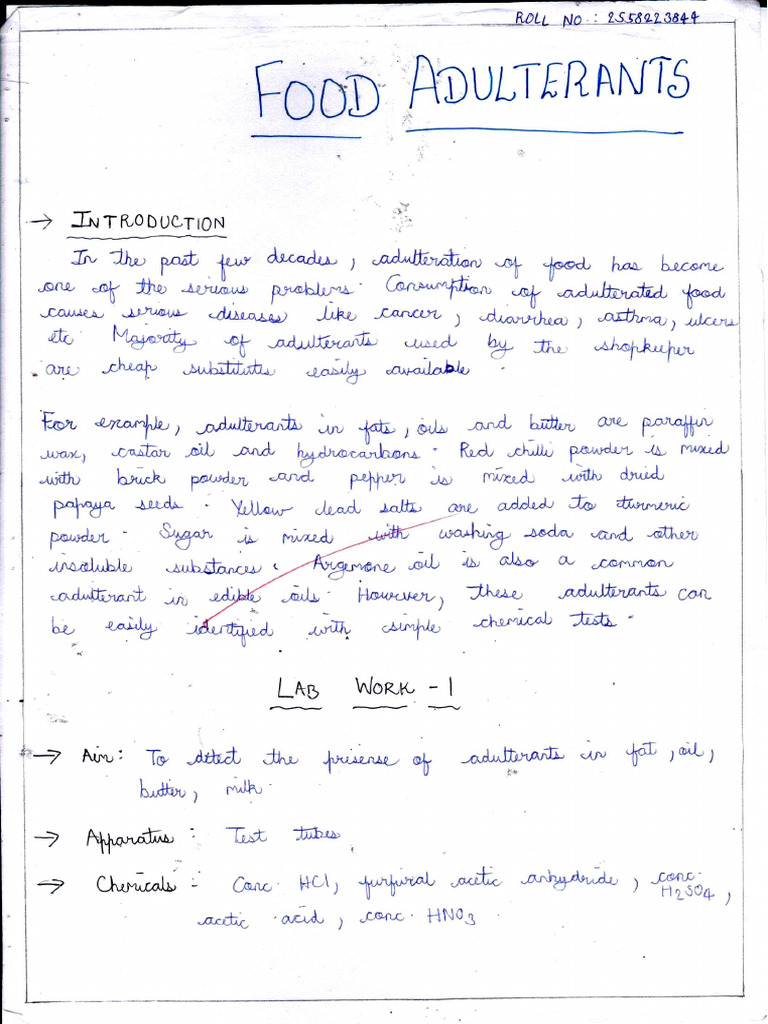 ROLL NO.: 2558223844
FOOD ADULTERANTS
→ INTRODUCTION
In the past few decades, adulteration of food has become
one of the serious problems. Consumption of adulterated food
causes serious diseases like cancer, diarrhea, asthma, ulcers
etc. Majority of adulterants used by the shopkeeper
are cheap substitutes easily available.
For example, adulterants in fats, oils and butter are paraffin
wax, castar oil and hydrocarbons. Red chilli powder is mixed
with brick powder and pepper is mixed with dried
papaya seeds. Yellow lead salts are added to turmeric
powder. Sugar is mixed with washing soda and other
insoluble substances. Argemone oil is also a common
adulterant in edible oils. However, these adulterants can
be easily identified with simple chemical tests.
LAB WORK - 1
→ Aim: To detect the presense of adulterants in fat, oil,
butter, milk.
→ Apparatus: Test tubes
→ Chemicals - Conc. HCl, furfural acetic anhydride, conc. H2SO4,
acetic acid, conc. HNO3